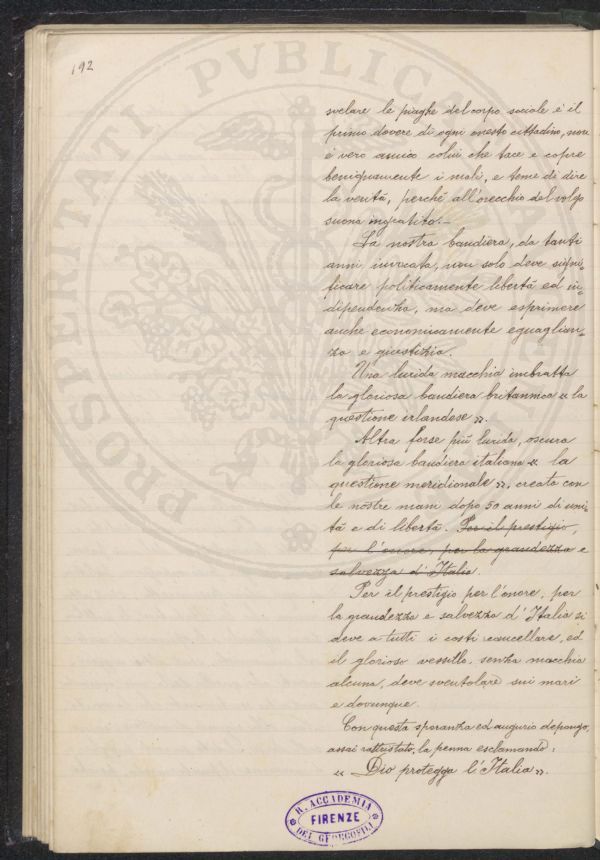 192
svelare le piaghe del corpo sociale è il
primo dovere di ogni onesto cittadino, non
è vero amico colui che tace e copre
benignamente i mali, e teme di dire
la verità, perchè all'orecchio del volgo
suona ingratito. –
La nostra bandiera, da tanti
anni invocata, non solo deve signi=
ficare politicamente libertà ed in=
dipendenza, ma deve esprimere
anche economicamente eguaglian=
za e giustizia.
Una lurida macchia imbratta
la gloriosa bandiera britannica « la
questione irlandese ».
Altra forse più lurida, oscura
la gloriosa bandiera italiana « la
questione meridionale », creata con
le nostre mani dopo 50 anni di uni=
tà e di libertà. Per il prestigio,
per l'onore, per la grandezza e
salvezza d'Italia.
Per il prestigio per l'onore, per
la grandezza e salvezza d'Italia si
deve a tutti i costi cancellare, ed
il glorioso vessillo, senza macchia
alcuna, deve sventolare sui mari
e dovunque.
Con questa speranza ed augurio depongo,
assai rattristato, la penna esclamando:
« Dio protegga l'Italia ».
R. ACCADEMIA
FIRENZE
DEI GEORGOFILI
PROSPERITATI PVBLICAE